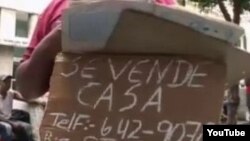 SE VENDE
CASA
TELF:- 642-907
YouTube